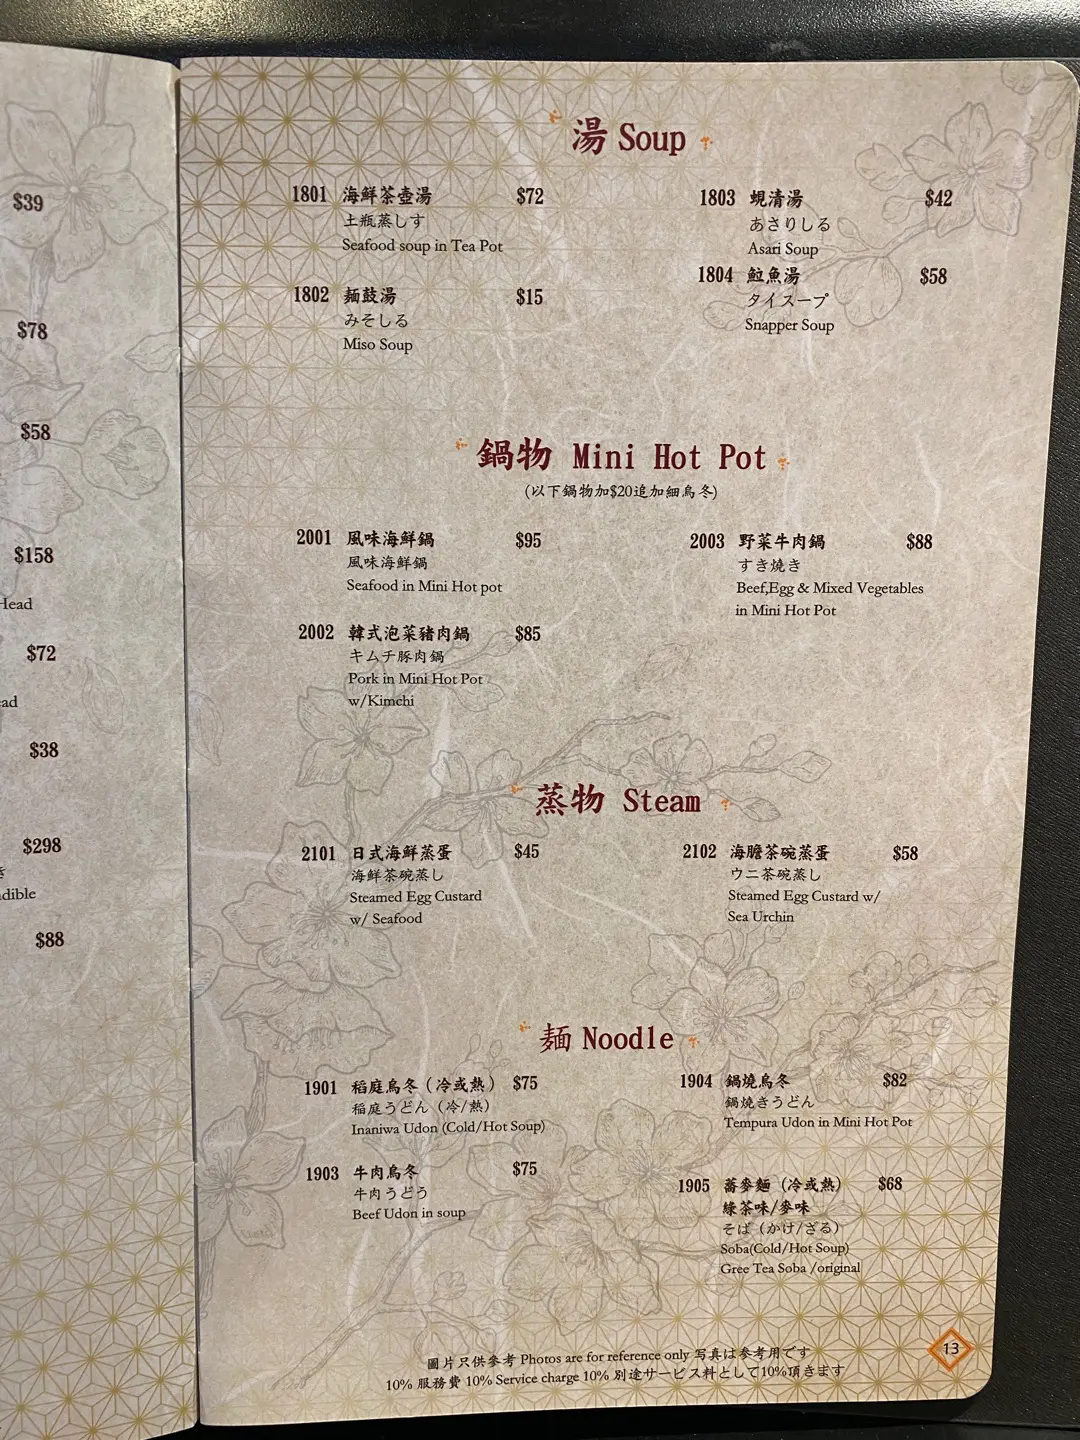 $39
$78
$58
$158
Head
$72
ead
$38
$298
き
ndible
$88
湯 Soup
1801 海鮮茶壺湯 $72
土瓶蒸しす
Seafood soup in Tea Pot
1802 麺鼓湯 $15
みそしる
Miso Soup
1803 蜆清湯 $42
あさりしる
Asari Soup
1804 鮋魚湯 $58
タイスープ
Snapper Soup
鍋物 Mini Hot Pot
(以下鍋物加$20追加細烏冬)
2001 風味海鮮鍋 $95
風味海鮮鍋
Seafood in Mini Hot pot
2002 韓式泡菜豬肉鍋 $85
キムチ豚肉鍋
Pork in Mini Hot Pot
w/Kimchi
2003 野菜牛肉鍋 $88
すき焼き
Beef,Egg & Mixed Vegetables
in Mini Hot Pot
蒸物 Steam
2101 日式海鮮蒸蛋 $45
海鮮茶碗蒸し
Steamed Egg Custard
w/ Seafood
2102 海膽茶碗蒸蛋 $58
ウニ茶碗蒸し
Steamed Egg Custard w/
Sea Urchin
麺 Noodle
1901 稻庭烏冬（冷或熱） $75
稲庭うどん（冷/熱）
Inaniwa Udon (Cold/Hot Soup)
1903 牛肉烏冬 $75
牛肉うどう
Beef Udon in soup
1904 鍋燒烏冬 $82
鍋燒きうどん
Tempura Udon in Mini Hot Pot
1905 蕎麥麵（冷或熱） $68
綠茶味/麥味
そば（かけ/ざる）
Soba(Cold/Hot Soup)
Gree Tea Soba /original
圖片只供參考 Photos are for reference only 写真は参考用です
10% 服務費 10% Service charge 10% 別途サービス料として10%頂きます
13